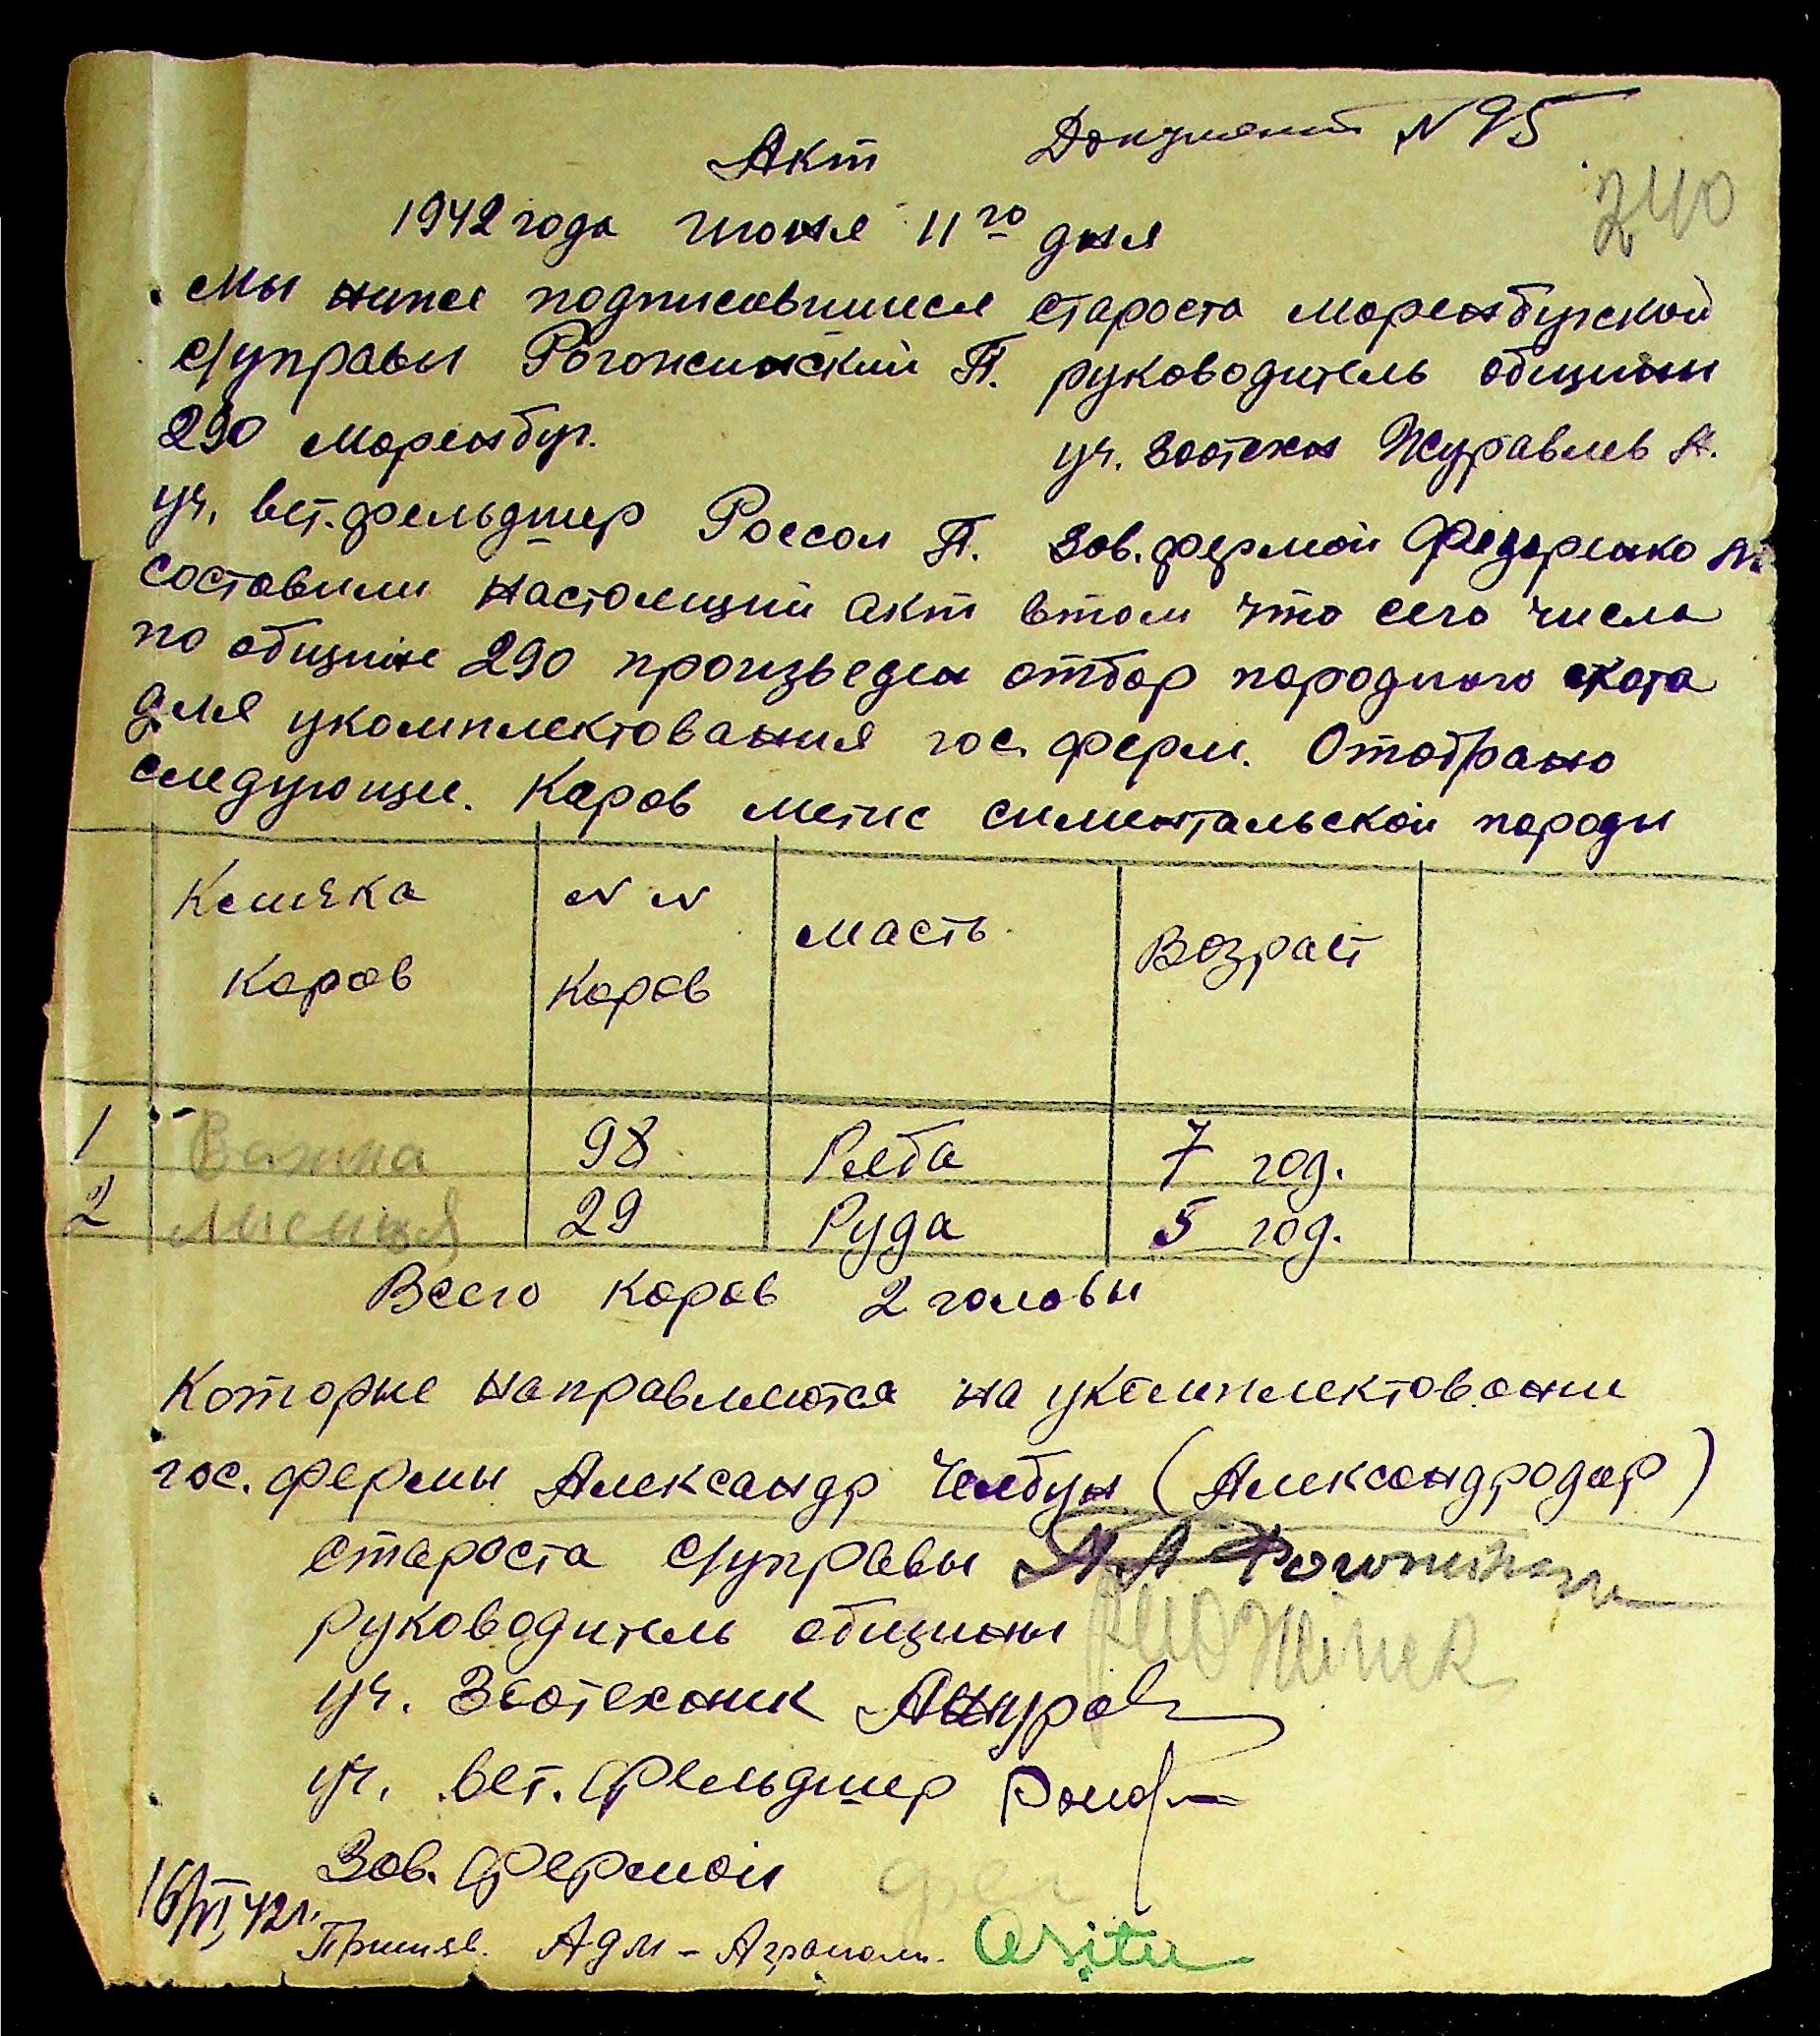 Акт Документ N 95
240
1942 года июня 11го дня
Мы ниже подписавшиеся староста Маренбургской
с/управы Рогожинский П. руководитель общины
290 Маренбург. уч. Зоотехн Журавлев А.
уч. вет. фельдшер Россол П. Зав. фермой Федоренко
составили настоящий акт втом что сего числа
по общине 290 произведен отбор породного скота
для укомплектования гос. ферм. Отобрано
следующие. Коров метис симентальской породы
Кличка коров N N коров Масть Возраст
1 98 Ряба 7 год.
2 29 Руда 5 год.
Всего коров 2 головы
Которые направляются на укомплектовани
гос. фермы Александр Челбун (Александродар)
Староста с/управы
руководитель общины
уч. Зоотехник
уч. вет. фельдшер
Зав. фермой
16/VI 42 г.
Принял. Адм - Агроном.